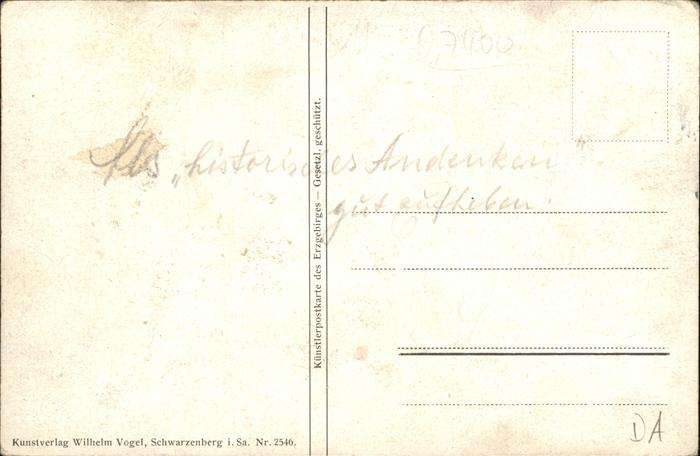 Als „historisches Andenken"
gut aufheben.
Künstlerpostkarte des Erzgebirges — Gesetzl. geschützt.
Kunstverlag Wilhelm Vogel, Schwarzenberg i. Sa. Nr. 2546.
DA